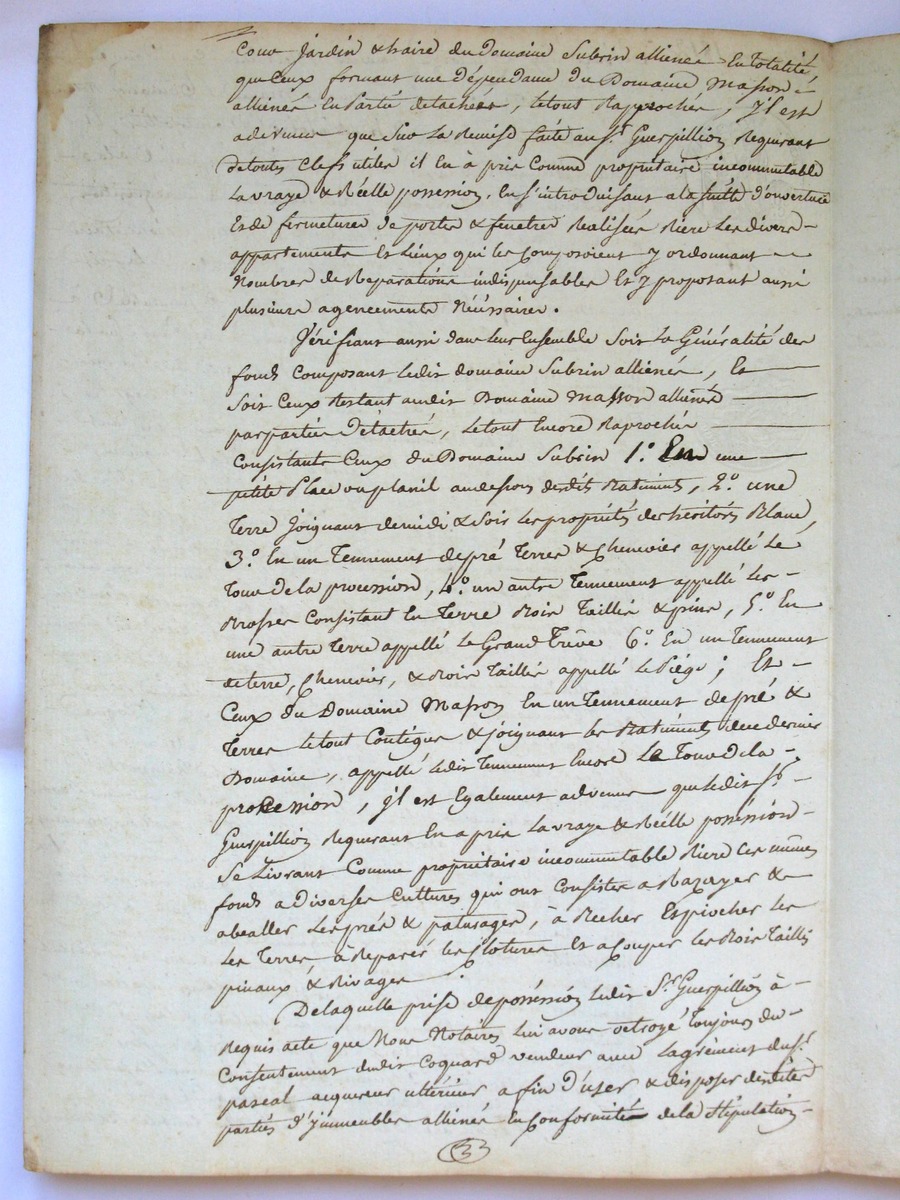 Cour Jardin & haire du Domaine Subrin allienée En Totalité
que Ceux formant une dépendance du Domaine Masson
alliénée En Partie detachées, le tout Rapprocher, Il est
advenue que Sur La Remise faite au Sr. Guerpillion Requerant
de toutes Clefs utiles il En à pris Comme propriétaire incommutable
La vraye & Réelle possession, En s'introduisant a la Suitte d'ouverture
Et de fermeture de portes & fenetres Realisées Riere Les divers
appartements Et Lieux qui les Composoient y ordonnant
Nombres de Reparations indispensables Et y proposant aussi
plusieurs agencements Nécéssaires.
Vérifiant aussi dans leur Ensemble Soit La Généralité des
fonds Composant Ledit domaine Subrin alliénés, Et
Soit Ceux Restant audit Domaine Masson alliénés
par parties Détachées, Le tout Encore Raproché
Consistants Ceux du Domaine Subrin 1.° En une
petite Place ou planil au dessous desdits Batiments, 2.° une
Terre Joignant de midi & Soir Les propriétés des héritiers Blanc,
3.° En un Tennement de pré Terres & Chenevier appellé Le
Tour de la procession, 4.° un autre Tennement appellé Les
Brosses Consistant En Terre Bois Taillis & pins, 5.° En
une autre Terre appellé Le Grand Trève 6.° En un Tennement
de terre, Chenevier, & Bois Taillis appellé Le Piége; Et
Ceux du Domaine Masson En un Tennement de pré &
Terres Le tout Contigue & joignant les Batiments de ce dernier
Domaine, appellé Ledit Tennement Encore Le Tour de la
procession, il est Egalement advenue que Ledit Sr.
Guerpillion Requerant En a pris La vraye & Réelle posséssion
Se Livrant Comme propriétaire incommutable Riere Ces mêmes
fonds a Diverses Cultures qui ont Consisté a &
abealler Les prés & paturages, à Becher Et piocher Les
Les Terres à Reparer les Clotures Et a Couper les Bois Taillis
pinaux & Rivages.
De laquelle prise de posséssion Ledit Sr. Guerpillion à
Requis acte que Nous Notaires Lui avons octroyé Toujours du
Consentement dudit Coquard vendeur avec L'agrément du Sr.
pascal acquereur ultérieur a fin D'user & disposer desdites
parties d'Immeubles alliénés En Conformité de la Stipulation
3